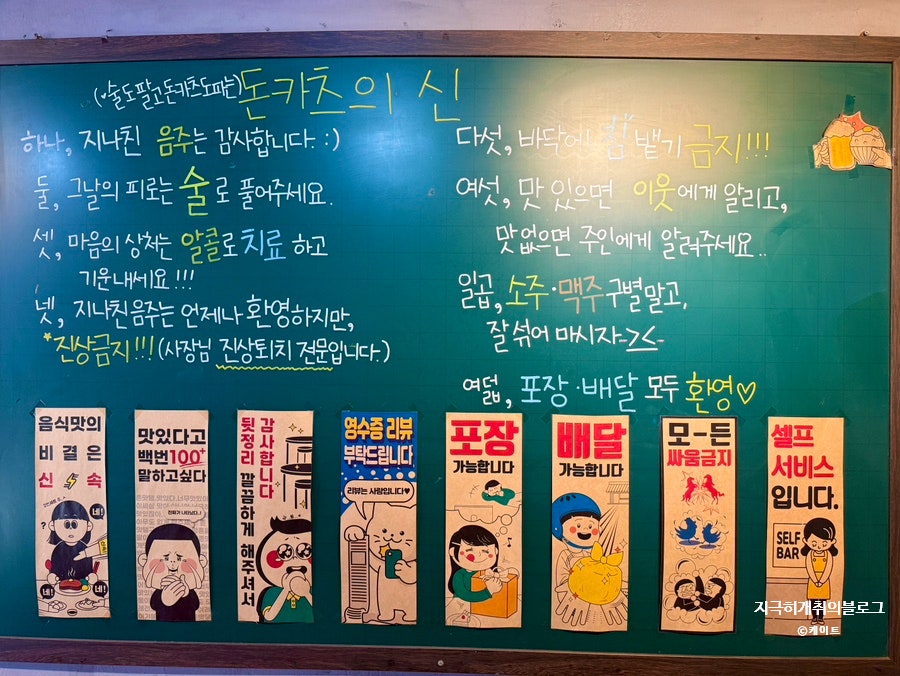 (♥술도팔고돈카츠도파는)돈카츠의 신
하나, 지나친 음주는 감사합니다. :)
둘, 그날의 피로는 술로 풀어주세요.
셋, 마음의 상처는 알콜로 치료 하고
기운내세요!!!
넷, 지나친음주는 언제나 환영하지만,
*진상금지!!! (사장님 진상퇴치 전문입니다.)
다섯, 바닥에 침 뱉기 금지!!!
여섯, 맛 있으면 이웃에게 알리고,
맛없으면 주인에게 알려주세요..
일곱, 소주·맥주 구별말고,
잘 섞어 마시자->.<-
여덟, 포장·배달 모두 환영♡
음식맛의
비결은
신속
네!
네!
네!
맛있다고
백번100+
말하고싶다
감사합니다
뒷정리 깔끔하게 해주셔서
영수증 리뷰
부탁드립니다
리뷰는 사랑입니다♥
포장
가능합니다
배달
가능합니다
모-든
싸움금지
셀프
서비스
입니다.
SELF
BAR
지극히개취의블로그
©케이트